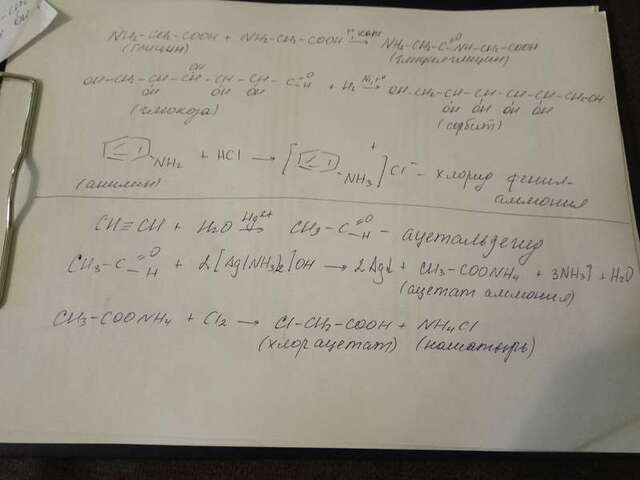 NH₂-CH₂-COOH + NH₂-CH₂-COOH → t° кат NH₂-CH₂-C(=O)-NH-CH₂-COOH
(глицин) (глицилглицин)
OH-CH₂-CH(OH)-CH(OH)-CH(OH)-CH(OH)-C(=O)-H + H₂ → Ni, t° OH-CH₂-CH(OH)-CH(OH)-CH(OH)-CH(OH)-CH₂OH
(глюкоза) (сорбит)
NH₂ + HCl → [NH₃]⁺ Cl⁻ - хлорид фенил-
(анилин) аммония
CH≡CH + H₂O → Hg²⁺ CH₃-C(=O)-H - ацетальдегид
CH₃-C(=O)-H + 2[Ag(NH₃)₂]OH → 2Ag↓ + CH₃-COONH₄ + 3NH₃↑ + H₂O
(ацетат аммония)
CH₃-COONH₄ + Cl₂ → Cl-CH₂-COOH + NH₄Cl
(хлорацетат) (нашатырь)